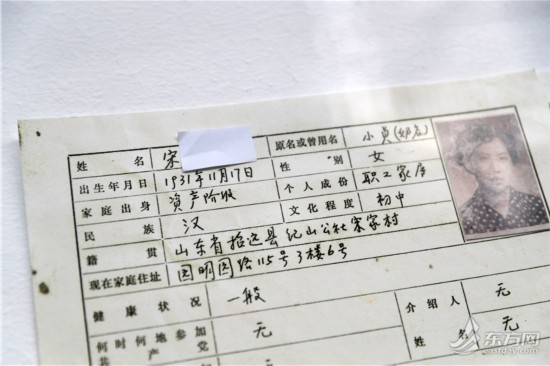 姓名 宋 原名或曾用名 小贞(邹店)
出生年月日 1931年11月17日 性别 女
家庭出身 资产阶级 个人成份 职工家属
民族 汉 文化程度 初中
籍贯 山东省招远县纪山公社宋家村
现在家庭住址 园明园路115号3楼6号
健康状况 一般 介绍人 无
何时何地参加 无 姓名 无
共产党
东方网
eastday.com